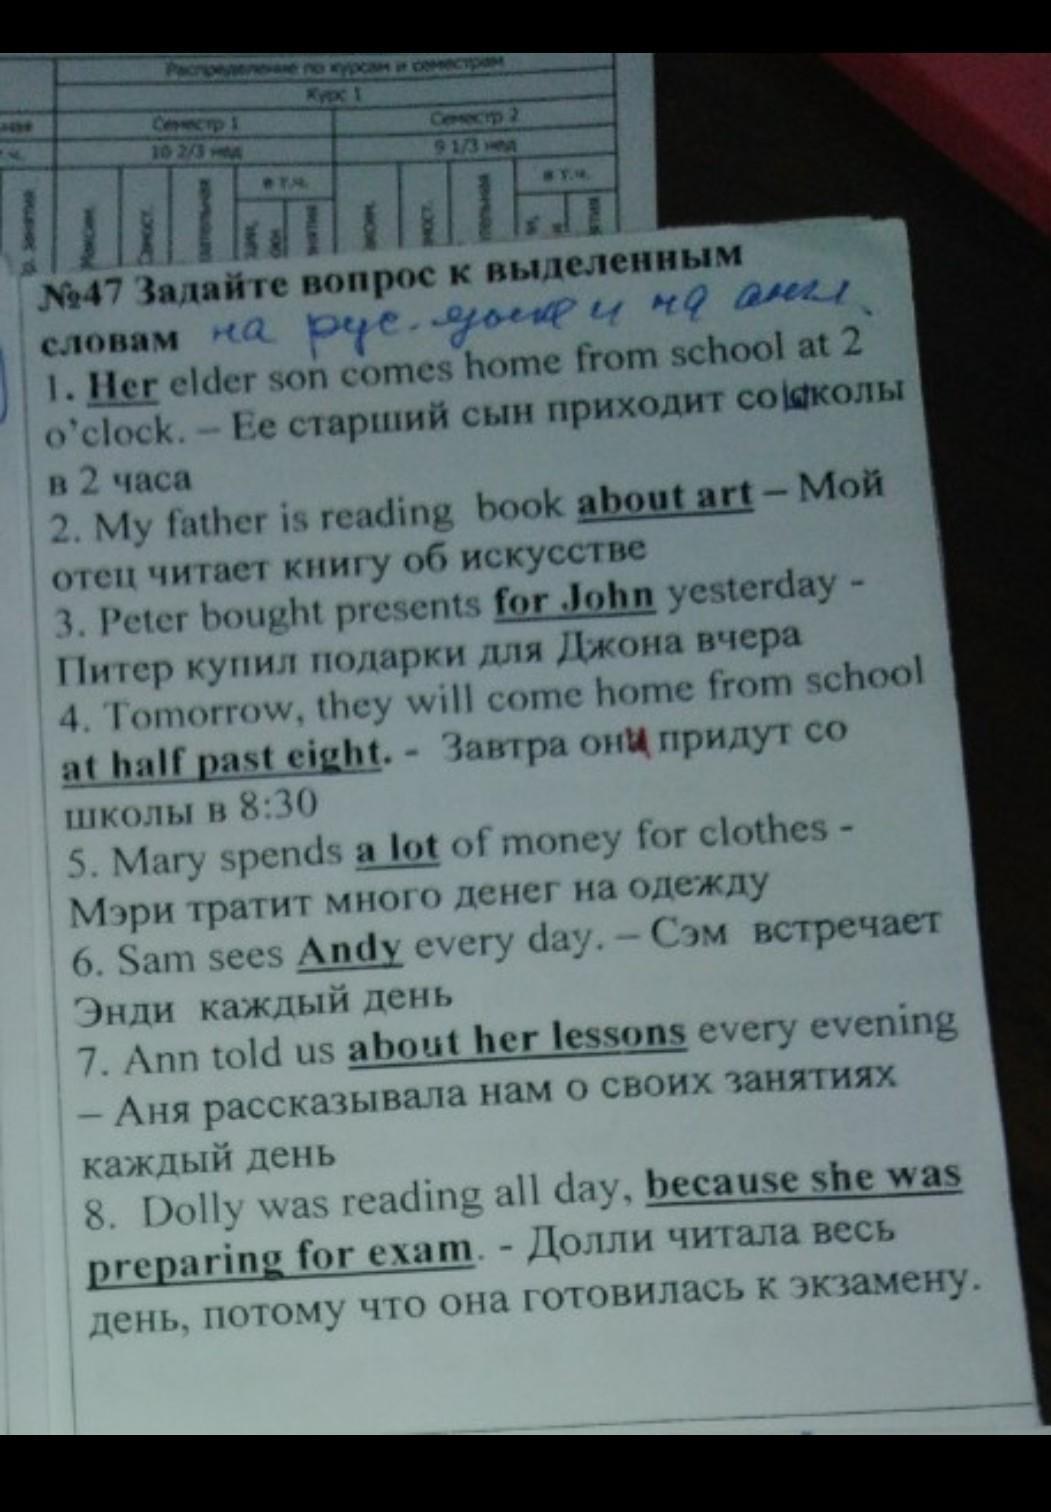 Распределение по курсам и семестрам
Курс 1
Семестр 1
Семестр 2
10 2/3 нед
9 1/3 нед
в т.ч.
в т.ч.
занятия
Максим.
Самост.
№47 Задайте вопрос к выделенным
словам на рус. языке и на англ.
1. Her elder son comes home from school at 2
o'clock. – Ее старший сын приходит со школы
в 2 часа
2. My father is reading book about art – Мой
отец читает книгу об искусстве
3. Peter bought presents for John yesterday -
Питер купил подарки для Джона вчера
4. Tomorrow, they will come home from school
at half past eight. - Завтра они придут со
школы в 8:30
5. Mary spends a lot of money for clothes -
Мэри тратит много денег на одежду
6. Sam sees Andy every day. – Сэм встречает
Энди каждый день
7. Ann told us about her lessons every evening
– Аня рассказывала нам о своих занятиях
каждый день
8. Dolly was reading all day, because she was
preparing for exam. - Долли читала весь
день, потому что она готовилась к экзамену.